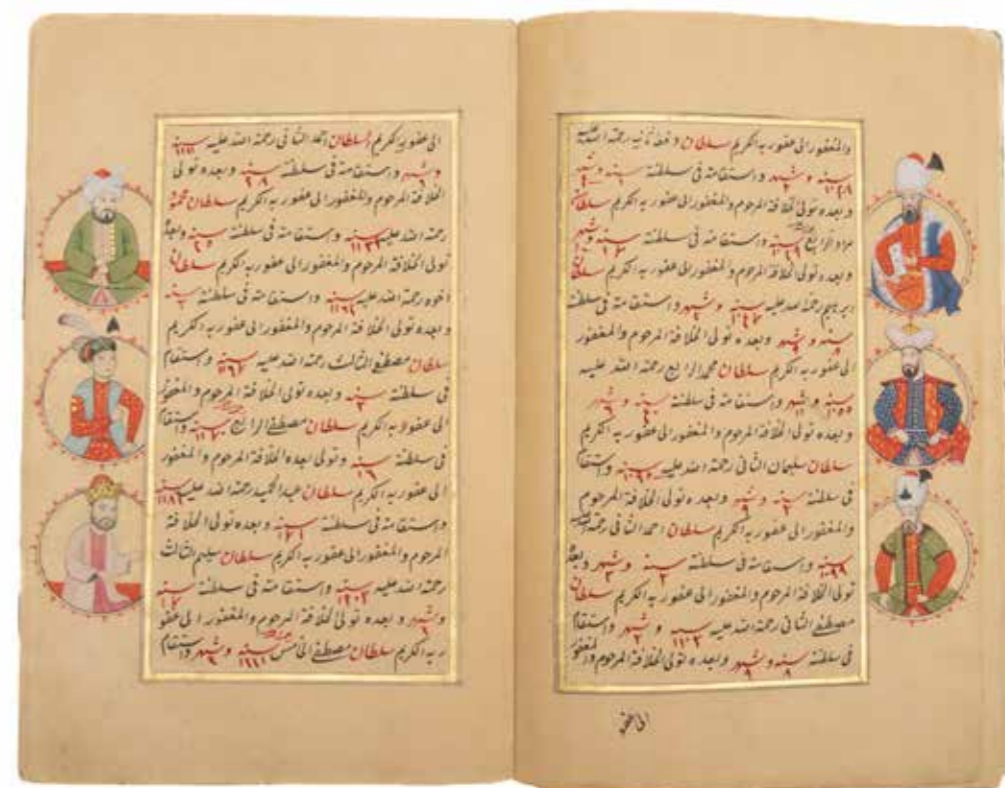 والمغفور الى عفو ربه الكريم سلطان دفعة ثانية رحمة الله عليه
سنة ١٠٢٨ وشهر ٢ واستقامته فى سلطنته سنة ١ وشهر
وبعده تولى الخلافة المرحوم والمغفور الى عفو ربه الكريم سلطان
مراد الرابع سنة ١٠٢٩ واستقامته فى سلطنته سنة وشهر
وبعده تولى الخلافة المرحوم والمغفور الى عفو ربه الكريم سلطان
ابرهيم رحمة الله عليه سنة ١٠٤٧ وشهر ٢ واستقامته فى سلطنته
سنة ٨ وشهر ٩ وبعده تولى الخلافة المرحوم والمغفور
الى عفو ربه الكريم سلطان محمد الرابع رحمة الله عليه
سنة ١٠٥٥ وشهر ١١ واستقامته فى سلطنته سنة ٤٠ وشهر ٦
وبعده تولى الخلافة المرحوم والمغفور الى عفو ربه الكريم
سلطان سليمان الثانى رحمة الله عليه سنة واستقام
فى سلطنته سنة ٢ وشهر ٩ وبعده تولى الخلافة المرحوم
والمغفور الى عفو ربه الكريم سلطان احمد الثانى رحمة الله عليه
سنة ١٠٩٩ واستقامته فى سلطنته سنة ٣ وشهر ٣ وبعده
تولى الخلافة المرحوم والمغفور الى عفو ربه الكريم سلطان
مصطفى الثانى رحمة الله عليه سنة ١١٠٣ وشهر ٢ واستقام
فى سلطنته سنة ٨ وشهر ٩ وبعده تولى الخلافة المرحوم والمغفور
الى عفو
الى عفو ربه الكريم سلطان احمد الثانى رحمة الله عليه سنة ١١١١
وشهر ٦ واستقامته فى سلطنته سنة وبعده تولى
الخلافة المرحوم والمغفور الى عفو ربه الكريم سلطان محمد
رحمة الله عليه سنة واستقامته فى سلطنته سنة ٢٥ وبعده
تولى الخلافة المرحوم والمغفور الى عفو ربه الكريم سلطان
اخوه رحمة الله عليه سنة واستقامته فى سلطنته سنة
وبعده تولى الخلافة المرحوم والمغفور الى عفو ربه الكريم
سلطان مصطفى الثالث رحمة الله عليه سنة واستقام
فى سلطنته سنة ٣ وبعده تولى الخلافة المرحوم والمغفور
الى عفو ربه الكريم سلطان مصطفى الرابع سنة ١١٧٠ واستقام
فى سلطنته سنة ١٦ وتولى بعده الخلافة المرحوم والمغفور
الى عفو ربه الكريم سلطان عبد الحميد رحمة الله عليه سنة ١١٨٦
واستقامته فى سلطنته سنة وبعده تولى الخلافة
المرحوم والمغفور الى عفو ربه الكريم سلطان سليم الثالث
رحمة الله عليه سنة ١٢٠٣ واستقامته فى سلطنته سنة ١٧
وشهر ٦ وبعده تولى الخلافة المرحوم والمغفور الى عفو
ربه الكريم سلطان مصطفى الخامس سنة وشهر واستقام